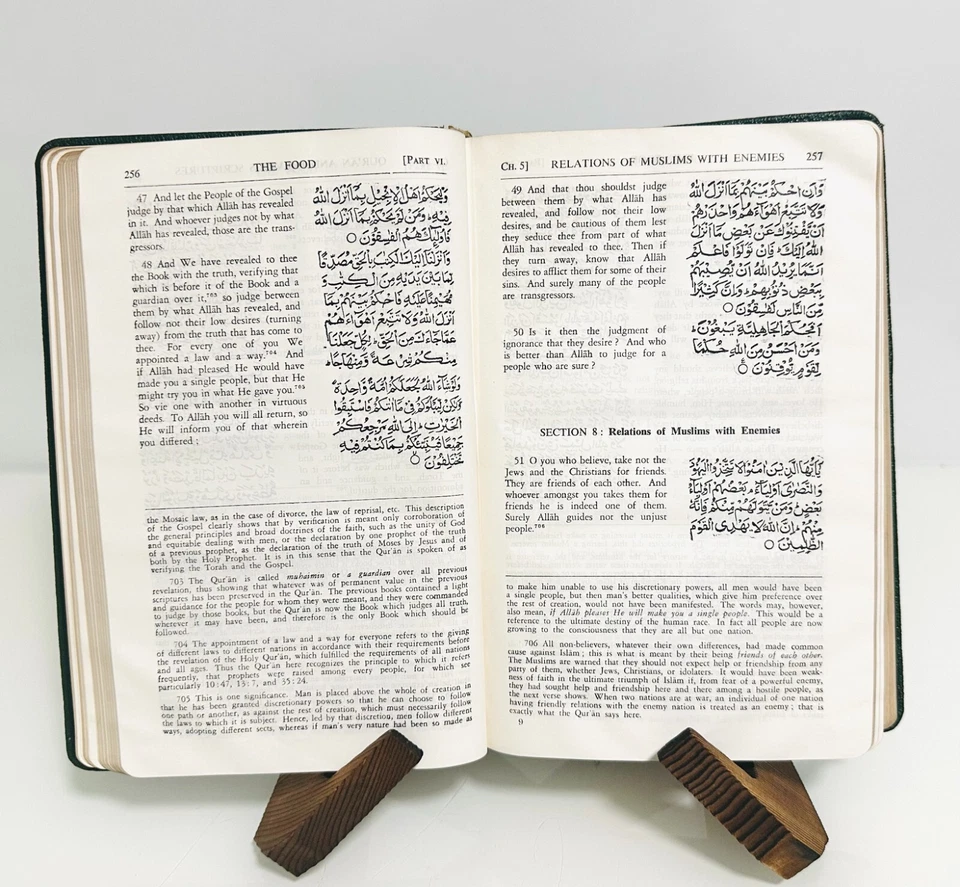 256 THE FOOD [PART VI.
47 And let the People of the Gospel
judge by that which Allāh has revealed
in it. And whoever judges not by what
Allāh has revealed, those are the trans-
gressors.
48 And We have revealed to thee
the Book with the truth, verifying that
which is before it of the Book and a
guardian over it,⁷⁰³ so judge between
them by what Allāh has revealed, and
follow not their low desires (turning
away) from the truth that has come to
thee. For every one of you We
appointed a law and a way.⁷⁰⁴ And
if Allāh had pleased He would have
made you a single people, but that He
might try you in what He gave you.⁷⁰⁵
So vie one with another in virtuous
deeds. To Allāh you will all return, so
He will inform you of that wherein
you differed ;
وَلْيَحْكُمْ اَهْلُ الْاِنْجِيْلِ بِمَآ اَنْزَلَ اللّٰهُ
فِيْهِ وَمَنْ لَّمْ يَحْكُمْ بِمَآ اَنْزَلَ اللّٰهُ
فَاُولٰٓئِكَ هُمُ الْفٰسِقُوْنَ ○
وَاَنْزَلْنَآ اِلَيْكَ الْكِتٰبَ بِالْحَقِّ مُصَدِّقًا
لِّمَا بَيْنَ يَدَيْهِ مِنَ الْكِتٰبِ وَ
مُهَيْمِنًا عَلَيْهِ فَاحْكُمْ بَيْنَهُمْ بِمَآ
اَنْزَلَ اللّٰهُ وَلَا تَتَّبِعْ اَهْوَآءَهُمْ
عَمَّا جَآءَكَ مِنَ الْحَقِّ لِكُلٍّ جَعَلْنَا
مِنْكُمْ شِرْعَةً وَّمِنْهَاجًا
وَلَوْ شَآءَ اللّٰهُ لَجَعَلَكُمْ اُمَّةً وَّاحِدَةً
وَّلٰكِنْ لِّيَبْلُوَكُمْ فِيْ مَآ اٰتٰىكُمْ فَاسْتَبِقُوا
الْخَيْرٰتِ اِلَى اللّٰهِ مَرْجِعُكُمْ
جَمِيْعًا فَيُنَبِّئُكُمْ بِمَا كُنْتُمْ فِيْهِ
تَخْتَلِفُوْنَ ○
the Mosaic law, as in the case of divorce, the law of reprisal, etc. This description
of the Gospel clearly shows that by verification is meant only corroboration of
the general principles and broad doctrines of the faith, such as the unity of God
and equitable dealing with men, or the declaration by one prophet of the truth
of a previous prophet, as the declaration of the truth of Moses by Jesus and of
both by the Holy Prophet. It is in this sense that the Qur'ān is spoken of as
verifying the Torah and the Gospel.
703 The Qur'ān is called muhaimin or a guardian over all previous
revelation, thus showing that whatever was of permanent value in the previous
scriptures has been preserved in the Qur'ān. The previous books contained a light
and guidance for the people for whom they were meant, and they were commanded
to judge by those books, but the Qur'ān is now the Book which judges all truth,
wherever it may have been, and therefore is the only Book which should be
followed.
704 The appointment of a law and a way for everyone refers to the giving
of different laws to different nations in accordance with their requirements before
the revelation of the Holy Qur'ān, which fulfilled the requirements of all nations
and all ages. Thus the Qur'ān here recognizes the principle to which it refers
frequently, that prophets were raised among every people, for which see
particularly 10 : 47, 13 : 7, and 35 : 24.
705 This is one significance. Man is placed above the whole of creation in
that he has been granted discretionary powers so that he can choose to follow
one path or another, as against the rest of creation, which must necessarily follow
the laws to which it is subject. Hence, led by that discretion, men follow different
ways, adopting different sects, whereas if man's very nature had been so made as
CH. 5] RELATIONS OF MUSLIMS WITH ENEMIES 257
49 And that thou shouldst judge
between them by what Allāh has
revealed, and follow not their low
desires, and be cautious of them lest
they seduce thee from part of what
Allāh has revealed to thee. Then if
they turn away, know that Allāh
desires to afflict them for some of their
sins. And surely many of the people
are transgressors.
50 Is it then the judgment of
ignorance that they desire ? And who
is better than Allāh to judge for a
people who are sure ?
وَاَنِ احْكُمْ بَيْنَهُمْ بِمَآ اَنْزَلَ اللّٰهُ
وَلَا تَتَّبِعْ اَهْوَآءَهُمْ وَاحْذَرْهُمْ
اَنْ يَّفْتِنُوْكَ عَنْ بَعْضِ مَآ اَنْزَلَ
اللّٰهُ اِلَيْكَ فَاِنْ تَوَلَّوْا فَاعْلَمْ
اَنَّمَا يُرِيْدُ اللّٰهُ اَنْ يُّصِيْبَهُمْ
بِبَعْضِ ذُنُوْبِهِمْ وَاِنَّ كَثِيْرًا
مِّنَ النَّاسِ لَفٰسِقُوْنَ ○
اَفَحُكْمَ الْجَاهِلِيَّةِ يَبْغُوْنَ
وَمَنْ اَحْسَنُ مِنَ اللّٰهِ حُكْمًا
لِّقَوْمٍ يُّوْقِنُوْنَ ○
SECTION 8 : Relations of Muslims with Enemies
51 O you who believe, take not the
Jews and the Christians for friends.
They are friends of each other. And
whoever amongst you takes them for
friends he is indeed one of them.
Surely Allāh guides not the unjust
people.⁷⁰⁶
يٰٓاَيُّهَا الَّذِيْنَ اٰمَنُوْا لَا تَتَّخِذُوا الْيَهُوْدَ
وَالنَّصٰرٰٓى اَوْلِيَآءَ بَعْضُهُمْ اَوْلِيَآءُ
بَعْضٍ وَمَنْ يَّتَوَلَّهُمْ مِّنْكُمْ فَاِنَّهٗ
مِنْهُمْ اِنَّ اللّٰهَ لَا يَهْدِى الْقَوْمَ
الظّٰلِمِيْنَ ○
to make him unable to use his discretionary powers, all men would have been
a single people, but then man's better qualities, which give him preference over
the rest of creation, would not have been manifested. The words may, however,
also mean, if Allāh pleases He will make you a single people. This would be a
reference to the ultimate destiny of the human race. In fact all people are now
growing to the consciousness that they are all but one nation.
706 All non-believers, whatever their own differences, had made common
cause against Islām ; this is what is meant by their being friends of each other.
The Muslims are warned that they should not expect help or friendship from any
party of them, whether Jews, Christians, or idolaters. It would have been weak-
ness of faith in the ultimate triumph of Islām if, from fear of a powerful enemy,
they had sought help and friendship here and there among a hostile people, as
the next verse shows. When two nations are at war, an individual of one nation
having friendly relations with the enemy nation is treated as an enemy ; that is
exactly what the Qur'ān says here.
9